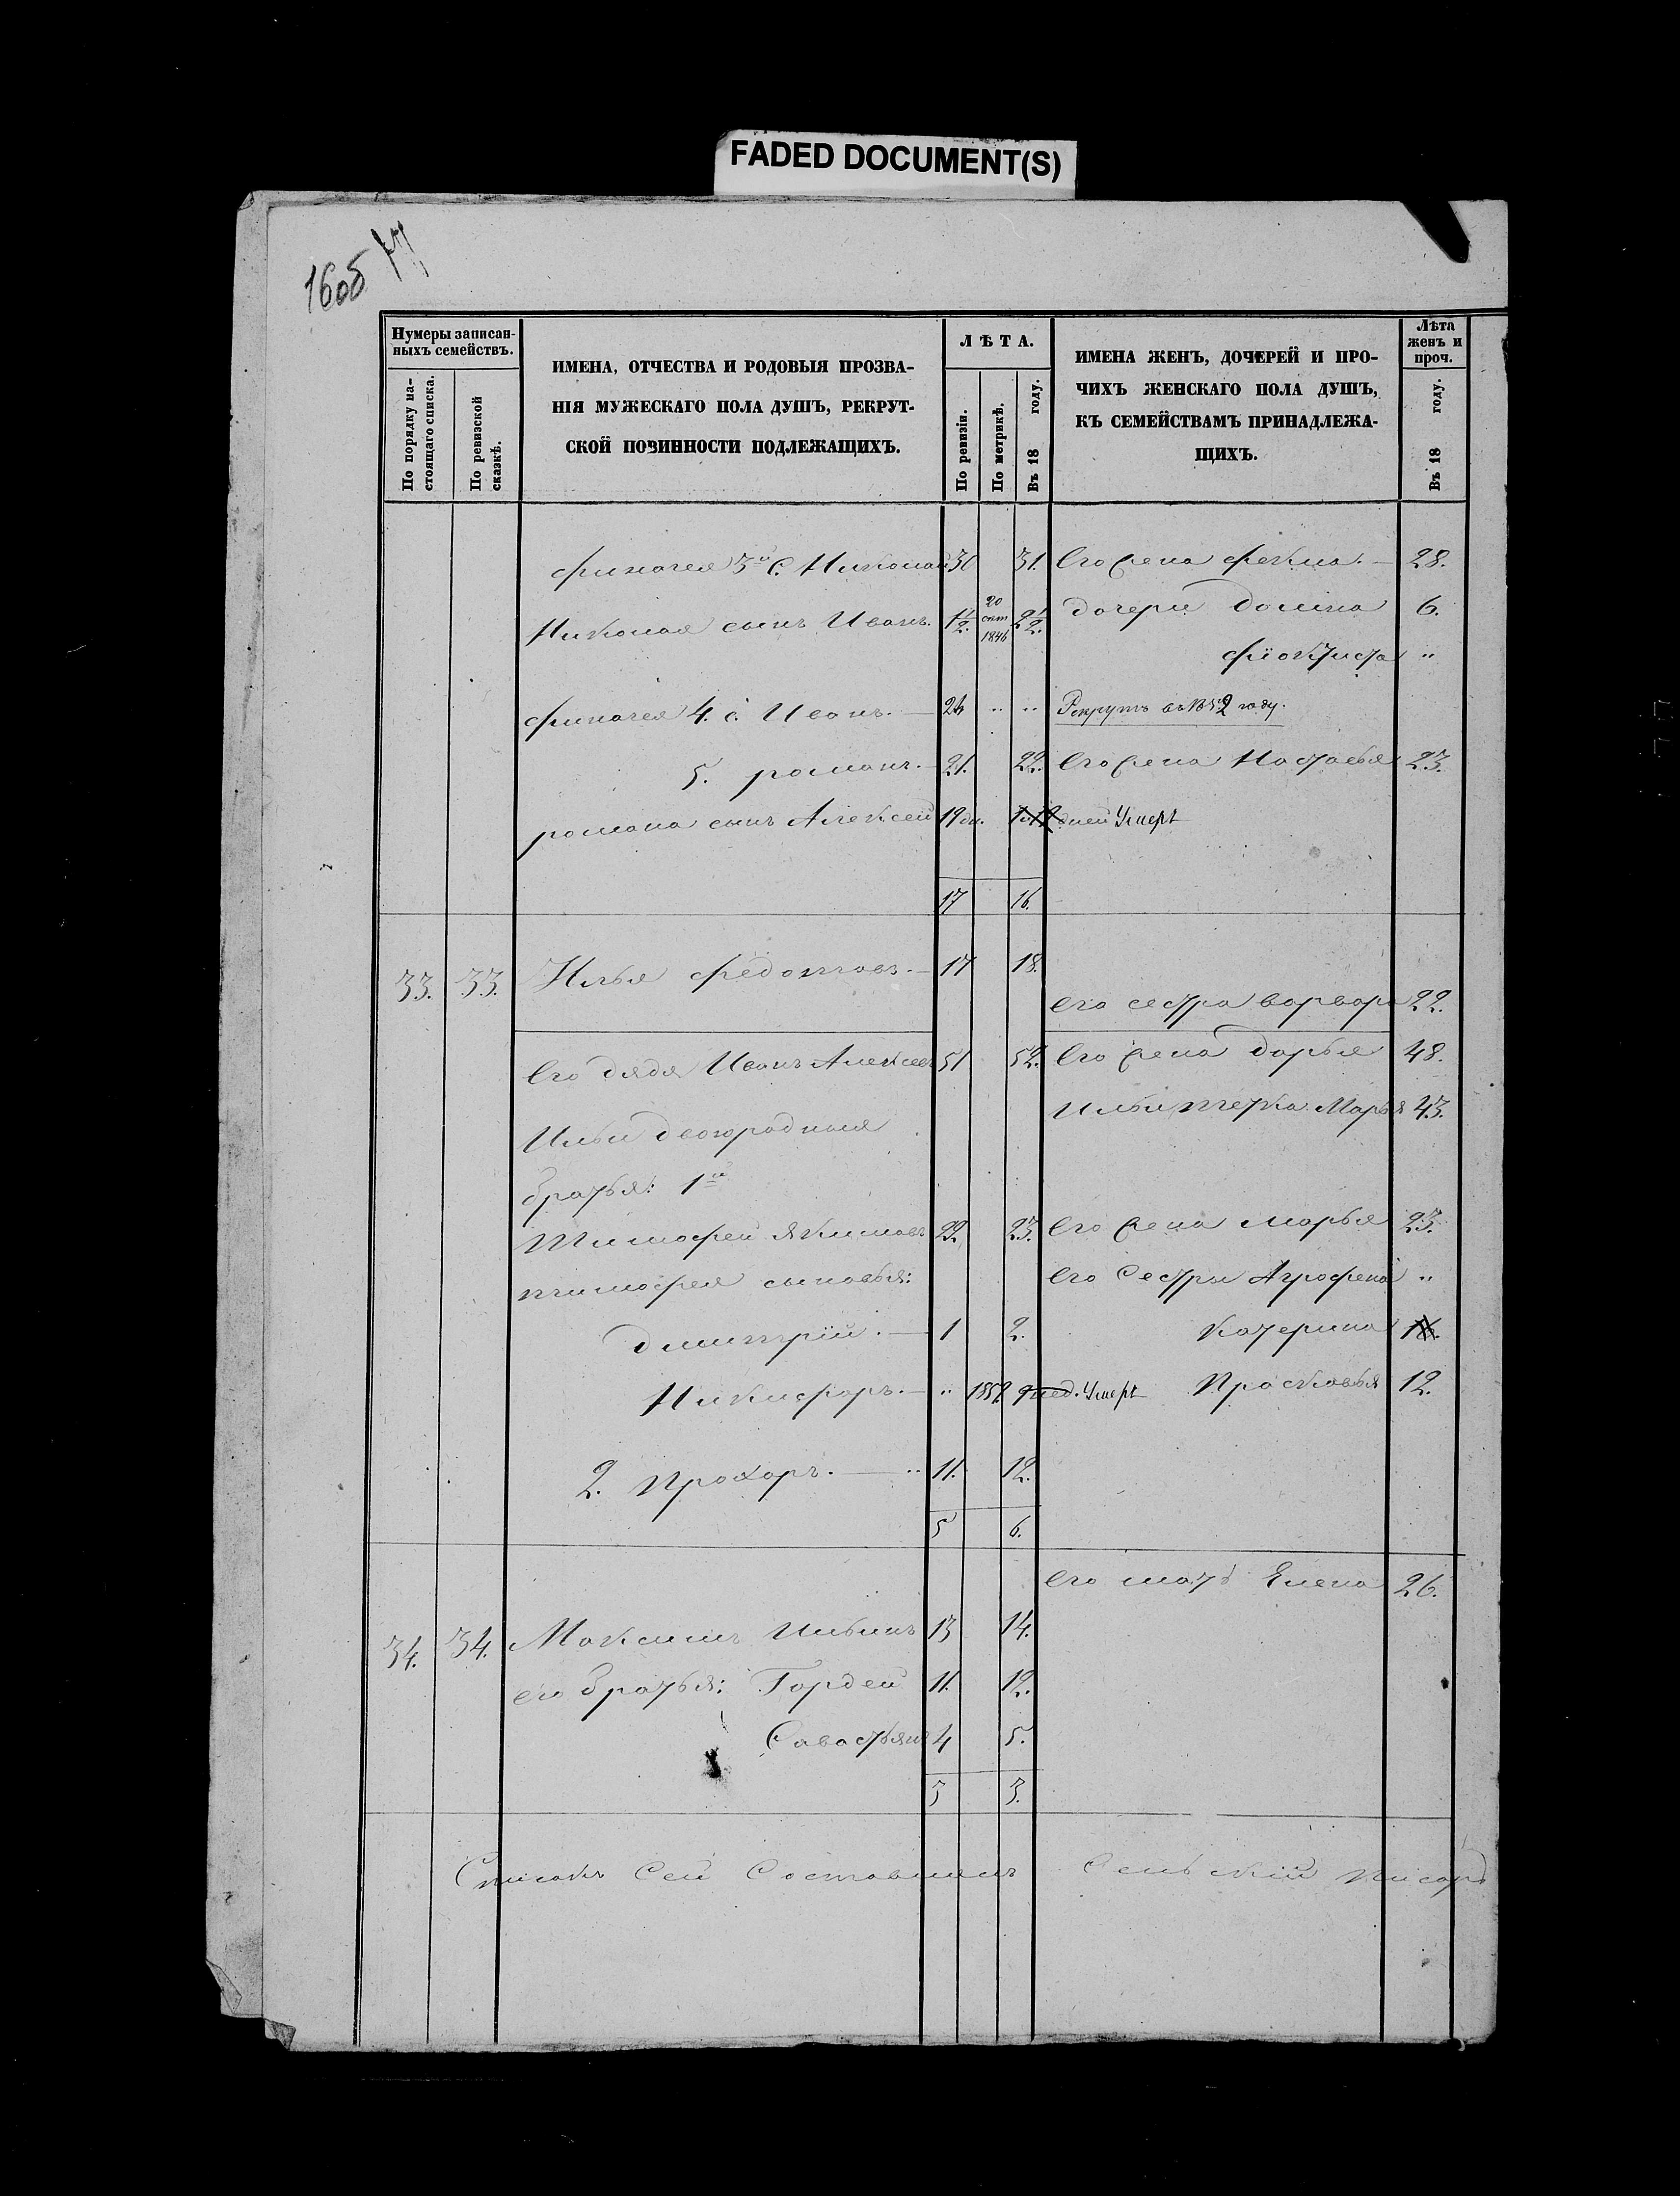 FADED DOCUMENT(S)
16об
Нумеры записан-
ныхъ семействъ.
По порядку на-
стоящаго списка.
По ревизской
сказкѣ.
ИМЕНА, ОТЧЕСТВА И РОДОВЫЯ ПРОЗВА-
НІЯ МУЖЕСКАГО ПОЛА ДУШЪ, РЕКРУТ-
СКОЙ ПОВИННОСТИ ПОДЛЕЖАЩИХЪ.
ЛѢТА.
По ревизіи.
По метрикѣ.
Въ 18 году.
ИМЕНА ЖЕНЪ, ДОЧЕРЕЙ И ПРО-
ЧИХЪ ЖЕНСКАГО ПОЛА ДУШЪ,
КЪ СЕМЕЙСТВАМЪ ПРИНАДЛЕЖА-
ЩИХЪ.
Лѣта
женъ и
проч.
Въ 18 году.
3й С. Николай 30 31. Его жена Фекла. — 28.
Николая сынъ Иванъ. 1½. 20 окт 1846 2½. дочери Домна 6.
Фіоктиста "
4. с. Иванъ. — 24 " " Рекрутъ въ 1852 году.
5. романъ. — 21. 22. Его жена Настасья 23.
романа сынъ Алексей 19 дн. дней Умеръ
17 16.
33. 33. Илья Федотовъ. — 17 18.
его сестра варвара 22.
Его дядя Иванъ Алексеевъ 51 52. Его жена дарья 48.
Ильи тетка Марья 43.
Ильи двоюродныя
братья: 1й
Тимофей Якимовъ 22. 23. Его жена марья 23.
тимофея сыновья: его Сестры Агрофена "
дмитрій. — 1 2. Катерина 16.
Никифоръ. — " 1852 9 нед. Умеръ Прасковья 12.
2. Прохоръ. — " 11. 12.
5 6.
его мать Елена 26.
34. 34. Максимъ Ильинъ 13 14.
его братья: Гордей 11. 12.
Савастьянъ 4 5.
3 3.
Списокъ Сей Составилъ Сельский писарь